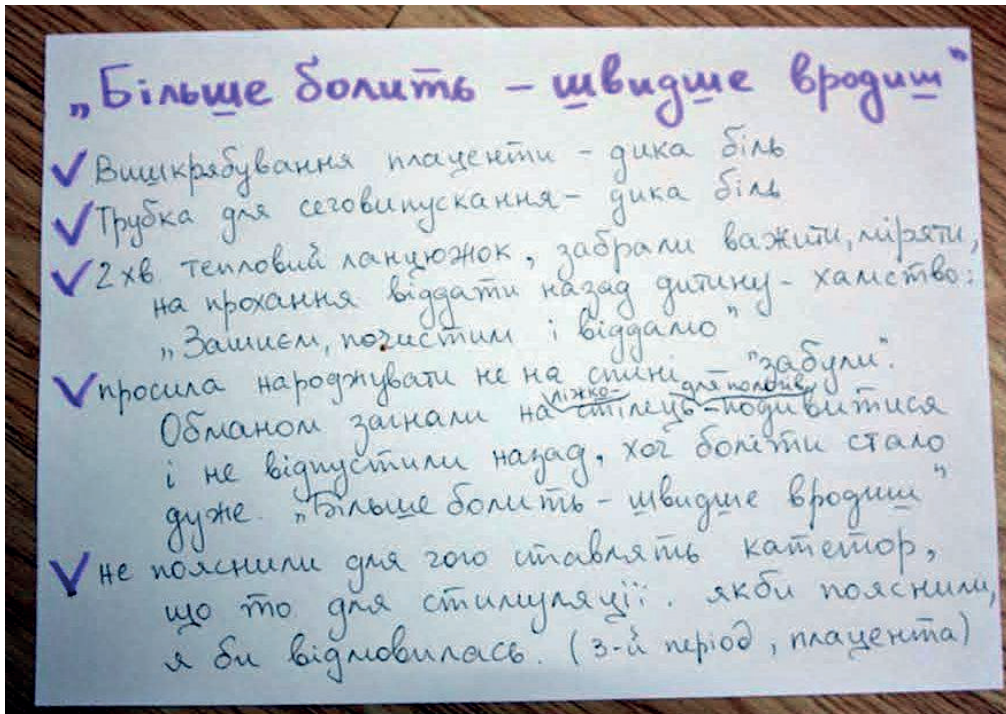 „Більше болить – швидше вродиш"
Вишкрябування плаценти – дика біль
Трубка для сеговипускання – дика біль
2 хв. тепловий ланцюжок, забрали важити, міряти,
на прохання віддати назад дитину – хамство:
„Зашиєм, почистим і віддамо"
просила народжувати не на спині "забули".
ліжко- для пологів
Обманом загнали на стілець – подивитися
і не відпустили назад, хоч боліти стало
дуже. „Більше болить – швидше вродиш"
не пояснили для чого ставлять катетор,
що то для стимуляції. якби пояснили,
я би відмовилась. (3-й період, плацента)